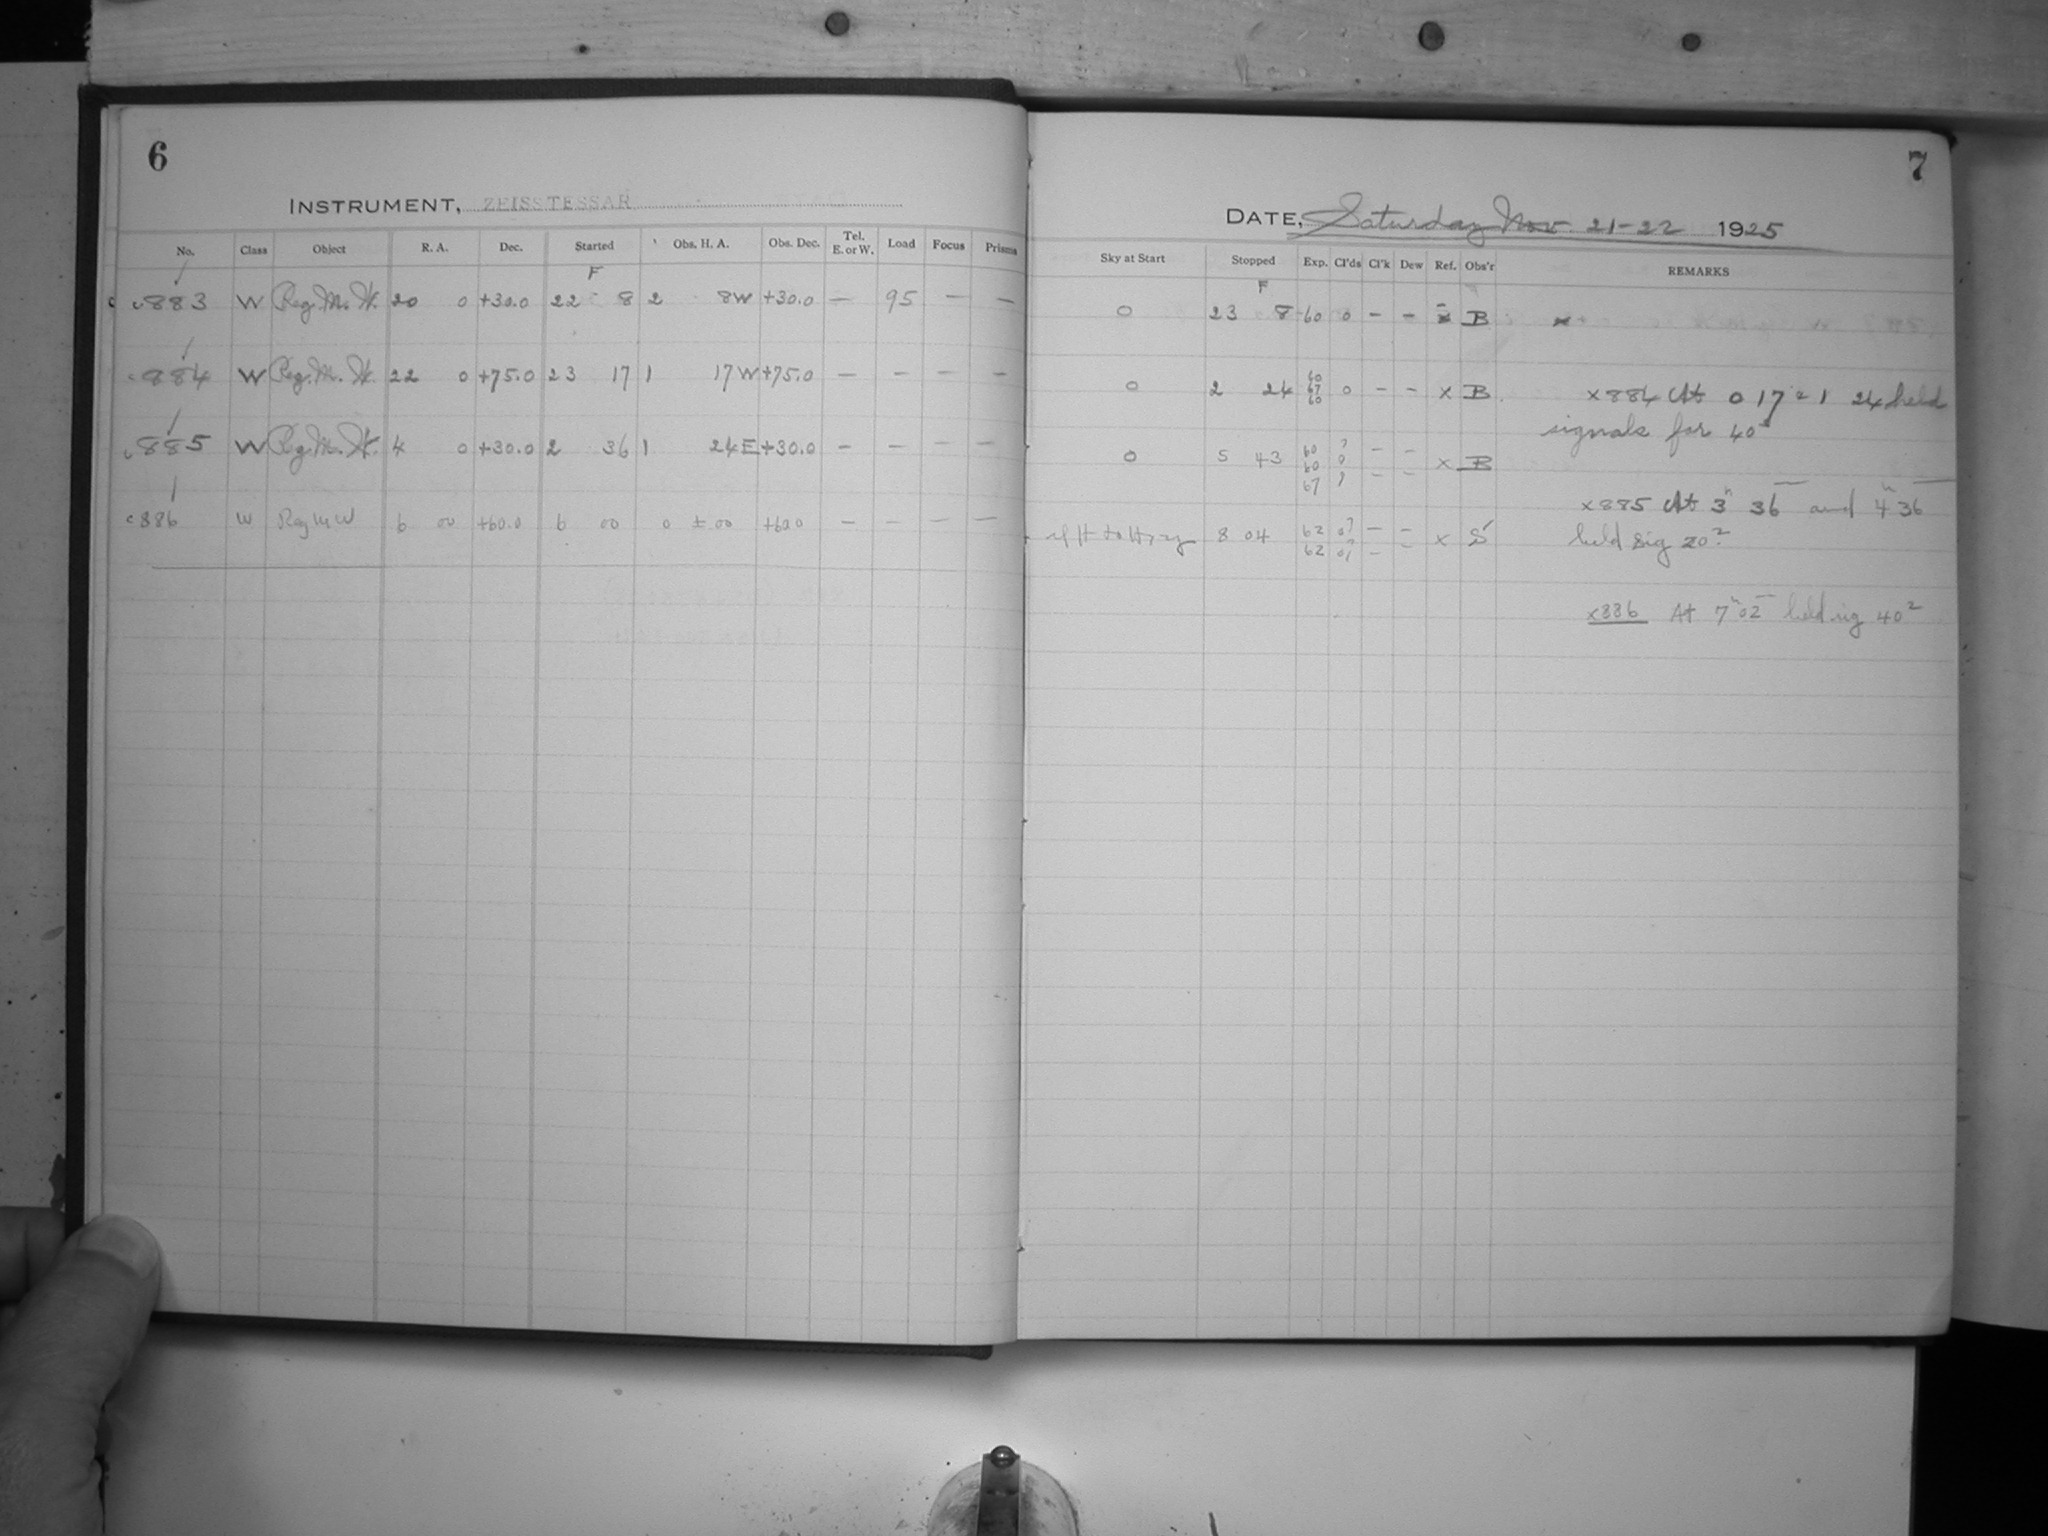 6
INSTRUMENT, ZEISS TESSAR
No. Class Object R. A. Dec. Started Obs. H. A. Obs. Dec. Tel. E. or W. Load Focus Prisms
F
883 W Reg. M. W. 20 0 +30.0 22 8 2 8W +30.0 — 95 — —
884 W Reg. M. W. 22 0 +75.0 23 17 1 17W +75.0 — — — —
885 W Reg. M. W. 4 0 +30.0 2 36 1 24E +30.0 — — — —
886 W Reg M W 6 00 +60.0 6 00 0 ±.00 +60.0 — — — —
7
DATE, Saturday Nov. 21-22 1925
Sky at Start Stopped Exp. Cl'ds Cl'k Dew Ref. Obs'r REMARKS
F
0 23 8 60 0 — — B
0 2 24 60 67 60 0 — — x B
x884 At 0 17 1 24 held
signals for 40s
0 5 43 60 60 67 ? 0 ? — — — — x B
x885 At 3h 36 and 4h 36
held sig 20s
8 04 62 62 0? 0? — — — — x S
x886 At 7h 02 held sig 40s